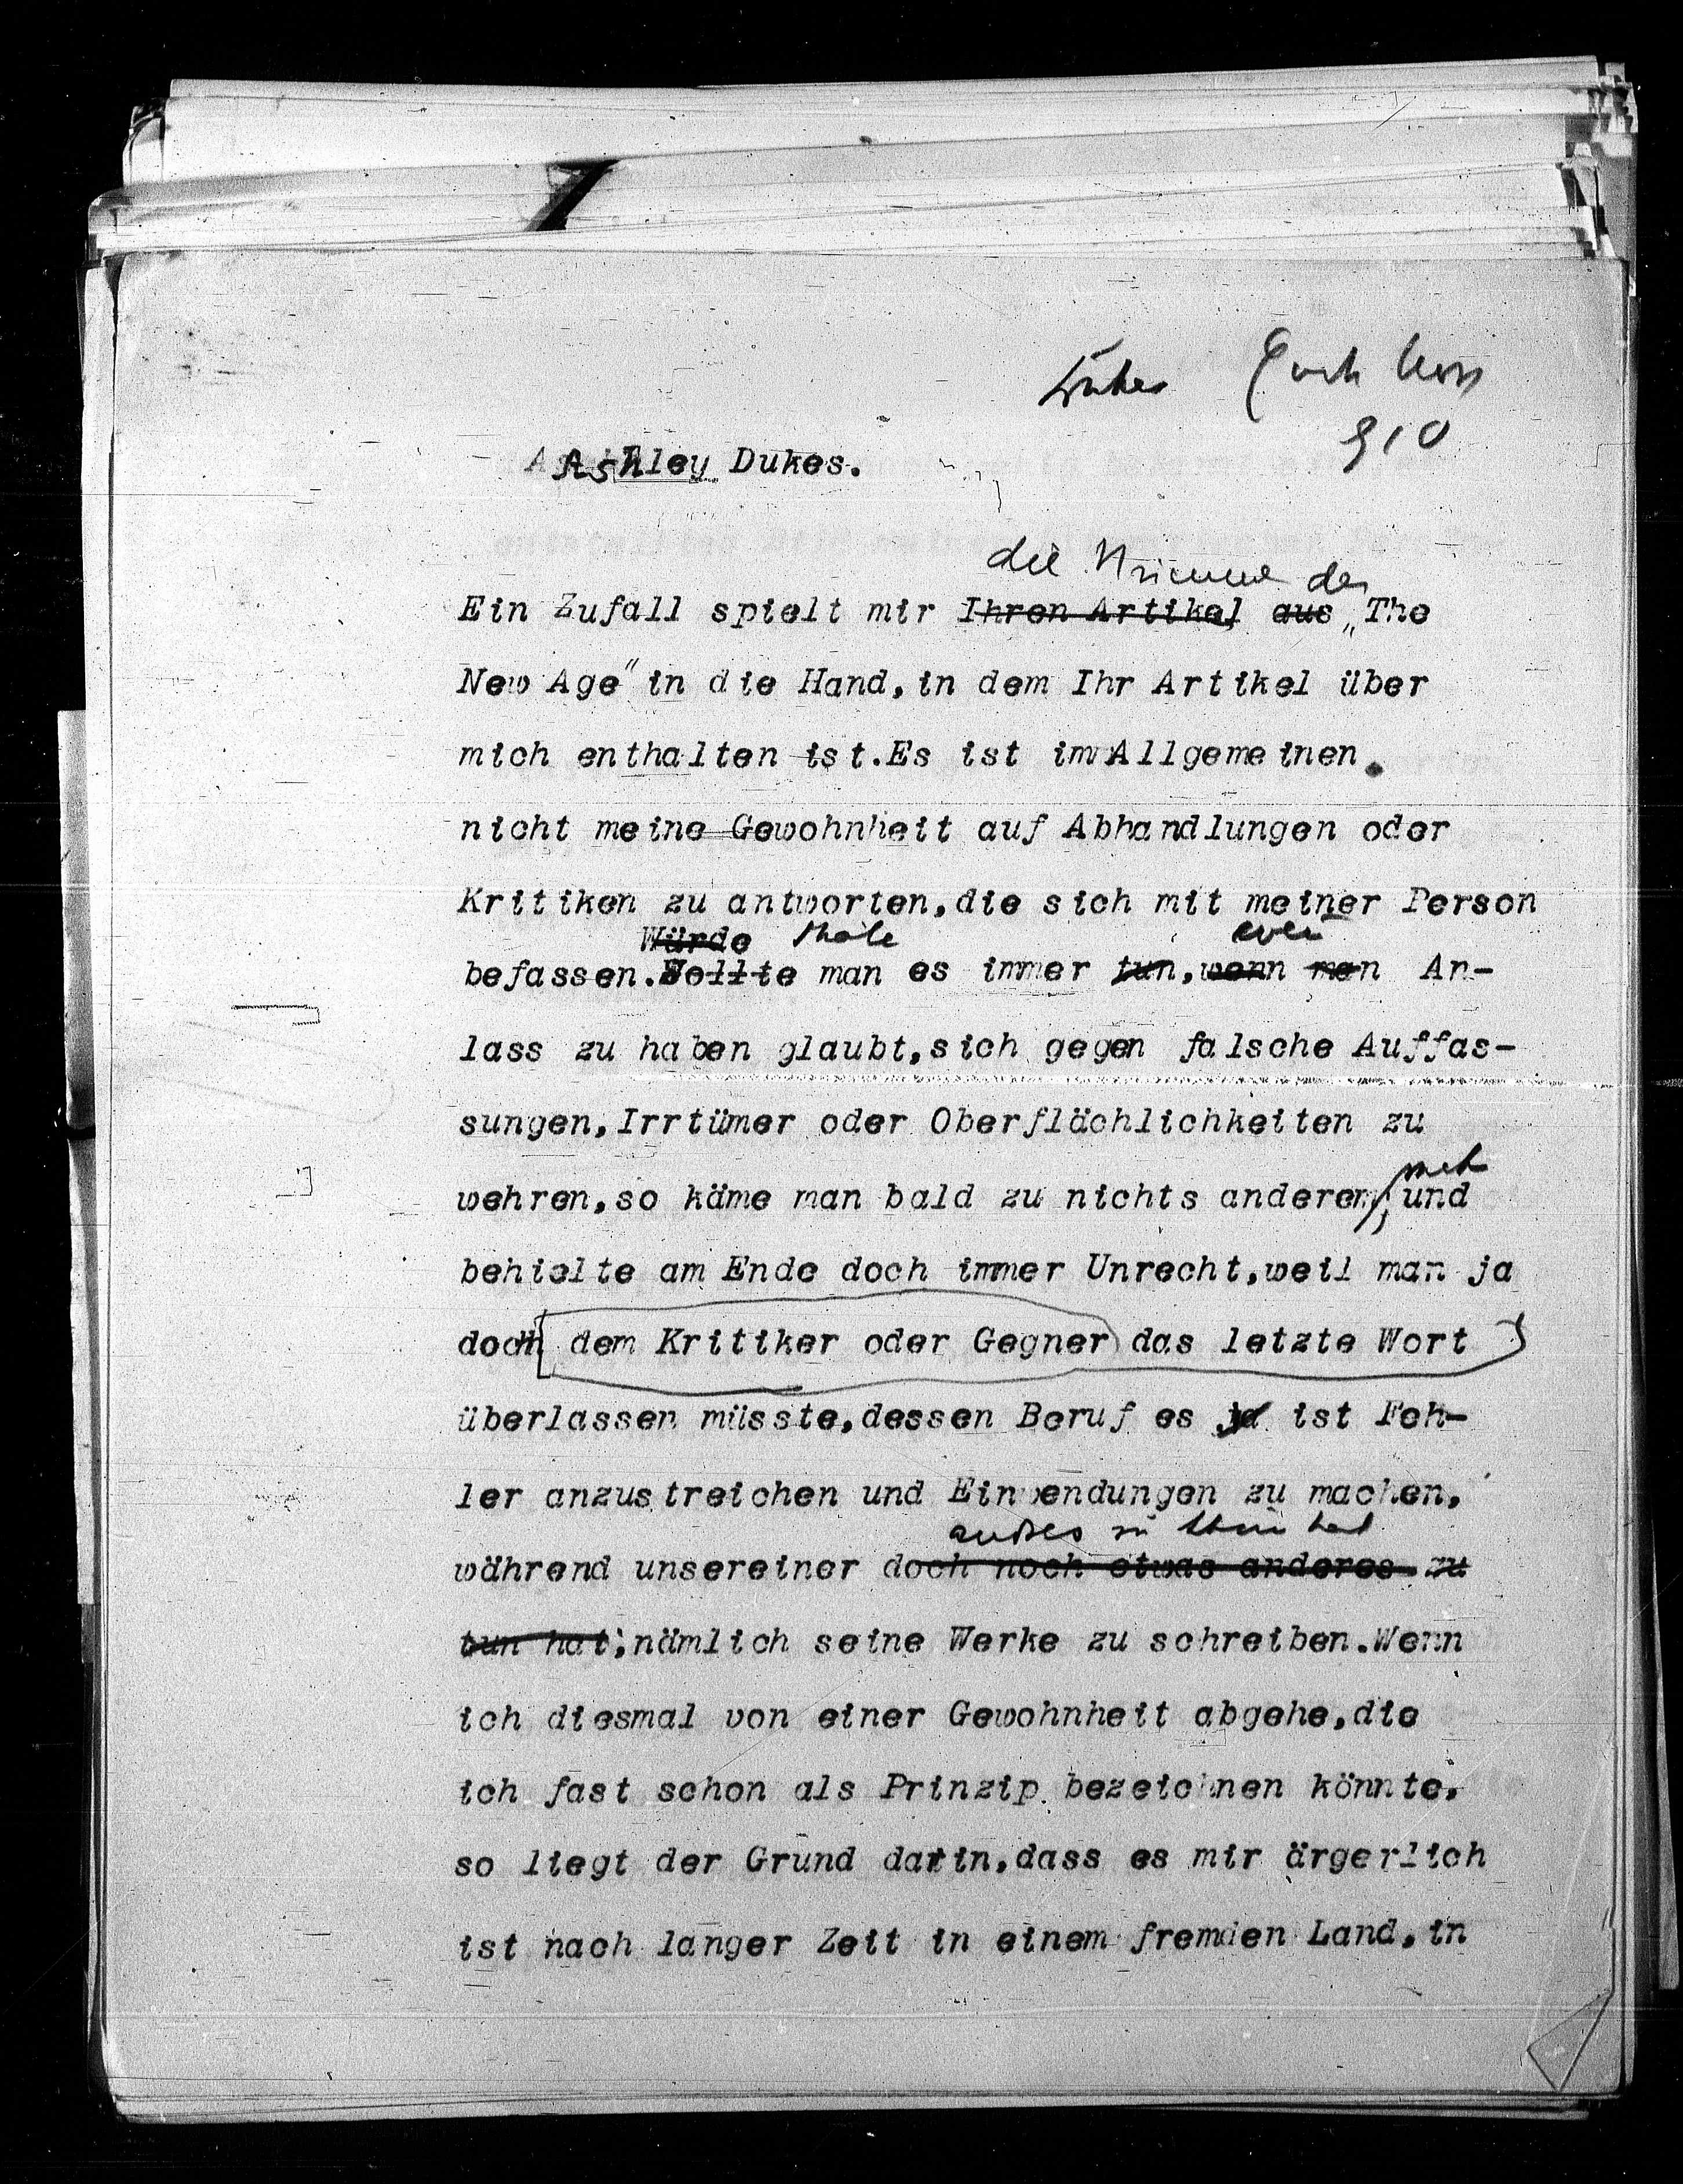 910
Ashley Dukes.
die Nummer der
Ein Zufall spielt mir Ihren Artikel aus „The
New Age" in die Hand, in dem Ihr Artikel über
mich enthalten ist. Es ist im Allgemeinen
nicht meine Gewohnheit auf Abhandlungen oder
Kritiken zu antworten, die sich mit meiner Person
Würde
befassen. Sollte man es immer tun, wenn man An-
lass zu haben glaubt, sich gegen falsche Auffas-
sungen, Irrtümer oder Oberflächlichkeiten zu
wehren, so käme man bald zu nichts anderem, und
behielte am Ende doch immer Unrecht, weil man ja
doch dem Kritiker oder Gegner das letzte Wort
überlassen müsste, dessen Beruf es ja ist Feh-
ler anzustreichen und Einwendungen zu machen,
während unsereiner doch noch etwas anderes zu
tun hat; nämlich seine Werke zu schreiben. Wenn
ich diesmal von einer Gewohnheit abgehe, die
ich fast schon als Prinzip bezeichnen könnte,
so liegt der Grund darin, dass es mir ärgerlich
ist nach langer Zeit in einem fremden Land, in